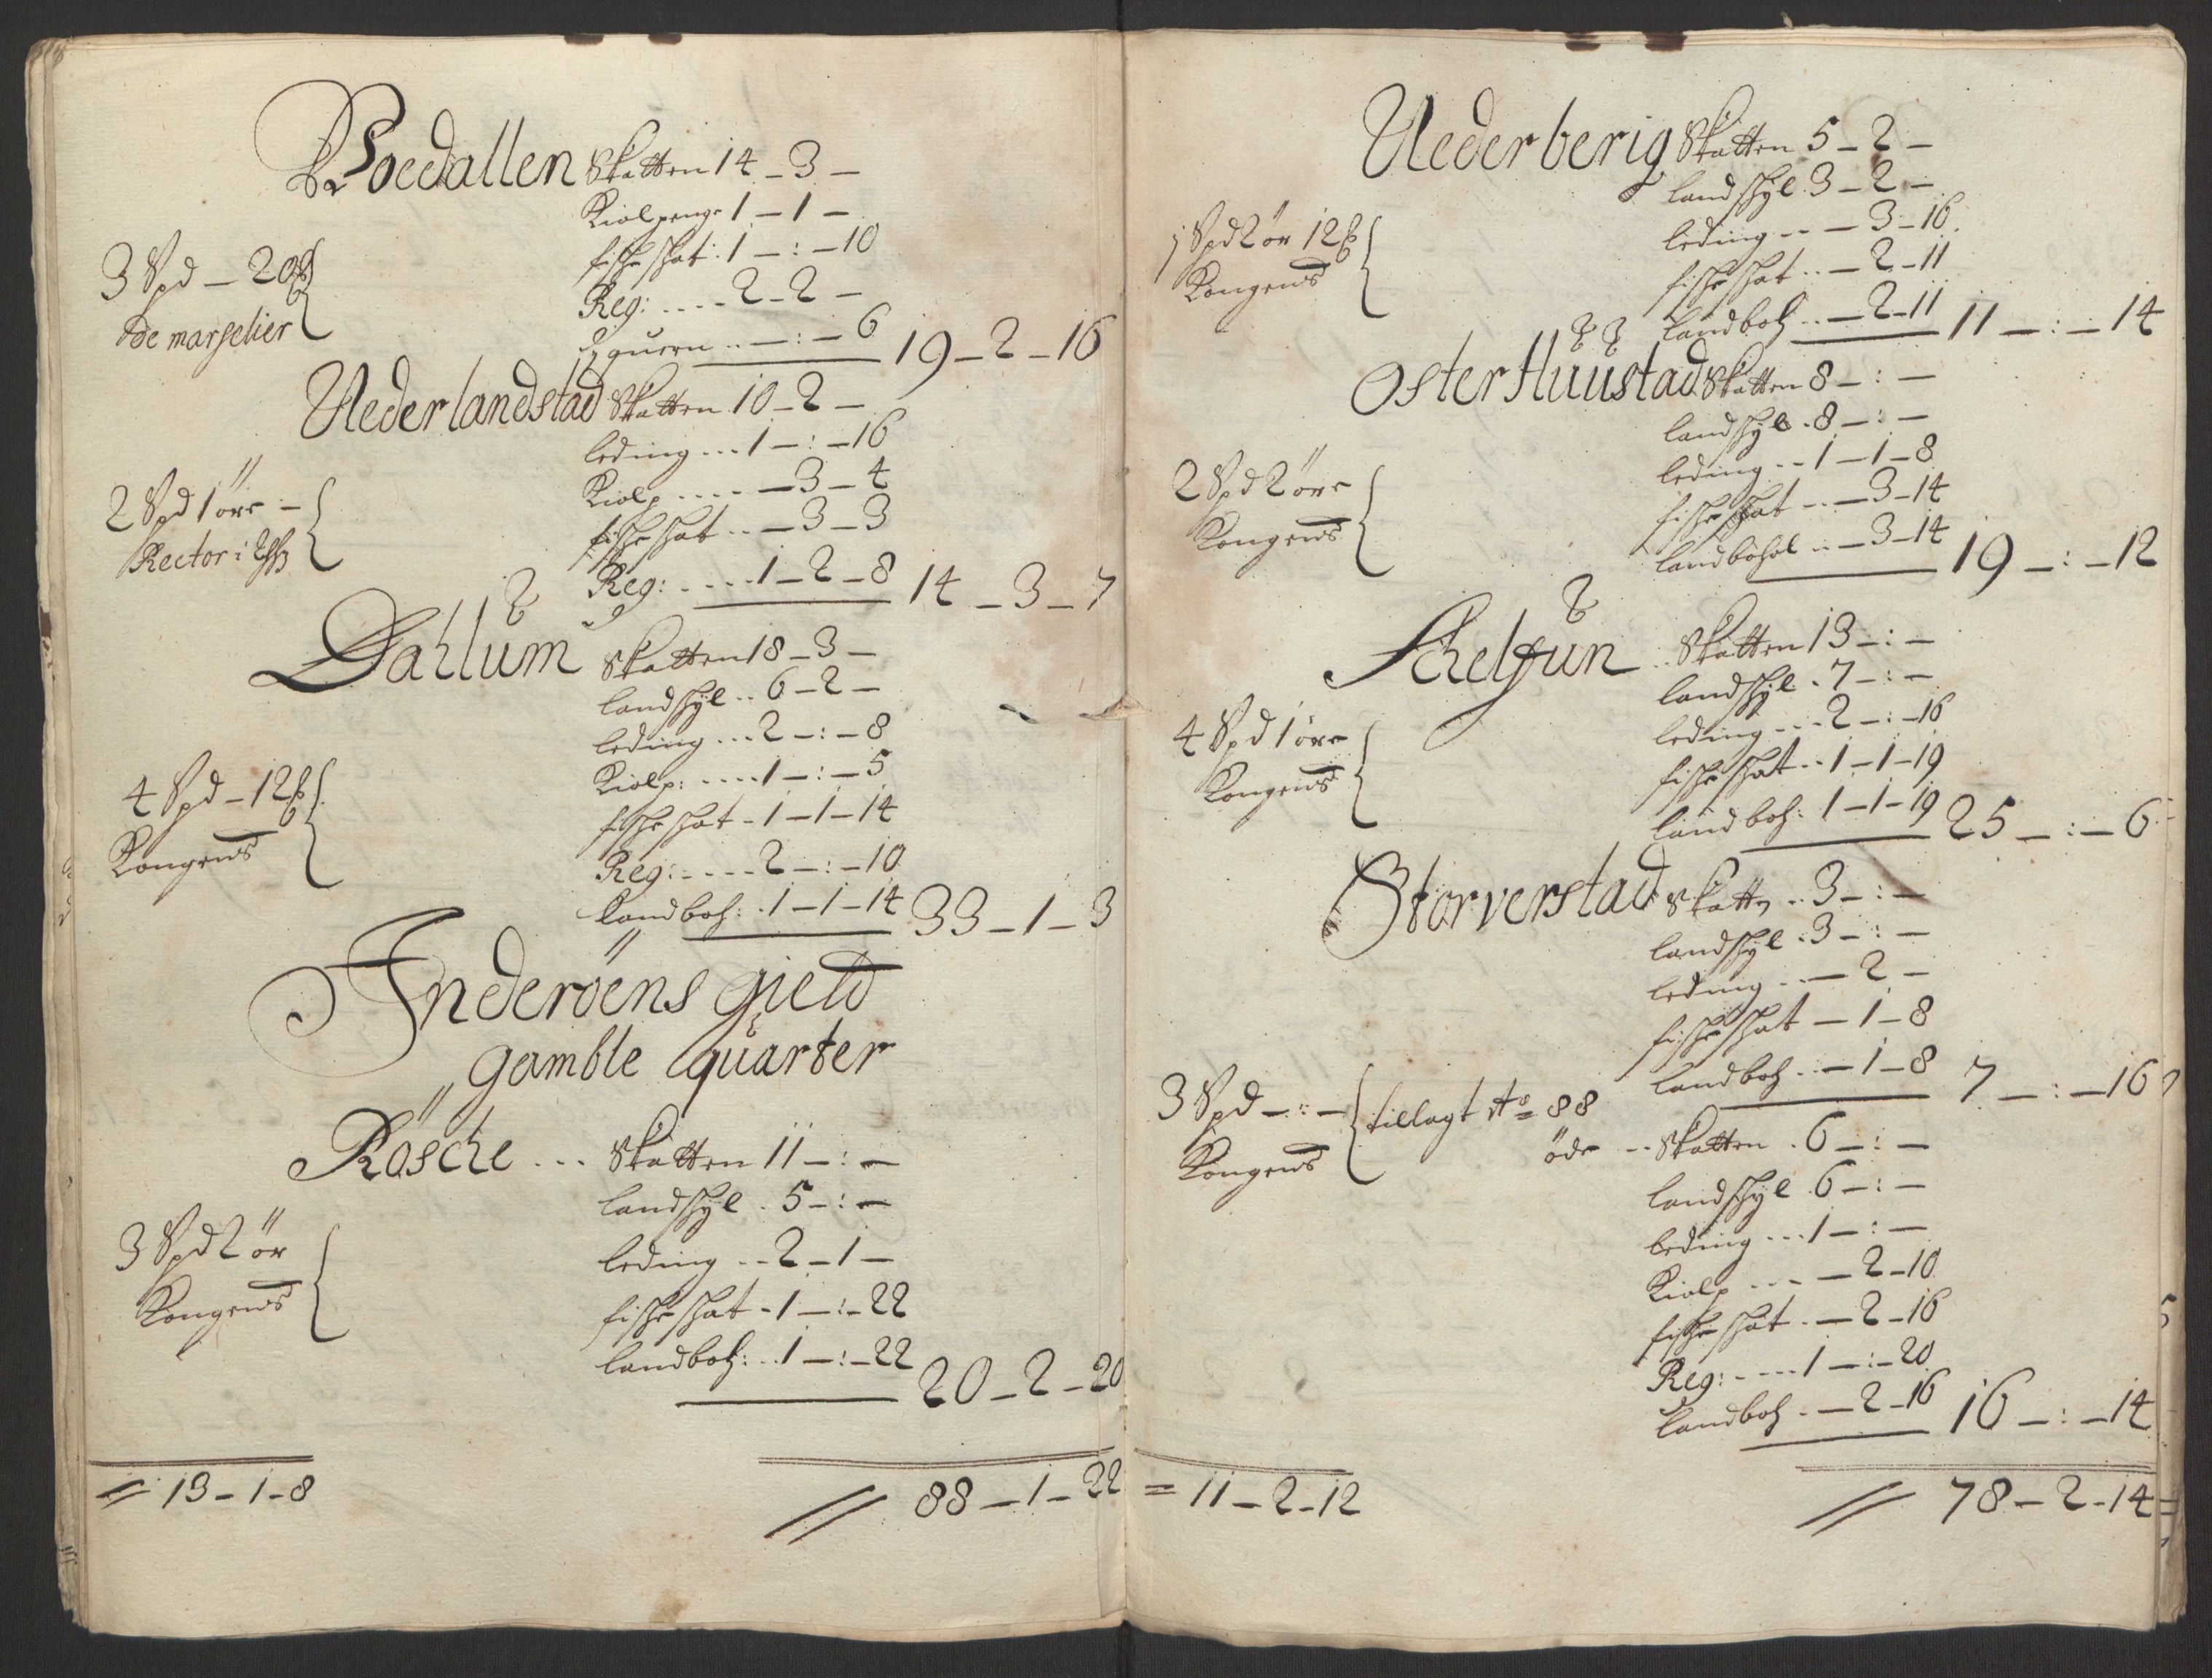 Woedallen Skatten 14 – 3 –
Kiolpenge 1 – 1 –
fischeskat : 1 – : – 10
3 Spd – 20
de marselier
Reg: .... 2 – 2 –
qvern .. – : – 6 19 – 2 – 16
Nederlandstad Skatten 10 – 2 –
leding ... 1 – : – 16
2 Spd 1 öre –
Rector i
Kiolp .... – 3 – 4
fischeskat .. – 3 – 3
Reg: .... 1 – 2 – 8 14 – 3 – 7
Dahlum Skatten 18 – 3 –
landskyl .. 6 – 2 –
leding ... 2 – : – 8
4 Spd – 12
Kongens
Kiolp: .... 1 – : – 5
fischeskat – 1 – 1 – 14
Reg: .... 2 – : – 10
Landboh: . 1 – 1 – 14 33 – 1 – 3
Inderöens gield
gamble quarter
Rösche ... Skatten 11 – : –
landskyl . 5 – : –
3 Spd 2 ör
Kongens
leding .. 2 – 1 –
fischeskat – 1 – : – 22
landboh: .. 1 – : – 22 20 – 2 – 20
= 13 – 1 – 8 // 88 – 1 – 22
Nederberig Skatten 5 – 2 –
landskyl . 3 – 2 –
1 Spd 2 ör 12
Kongens
leding .. – 3 – 16
fischeskat .. – 2 – 11
Landboh .. – 2 – 11 11 – : – 14
Oster Huustad Skatten 8 – : –
landskyl . 8 – : –
2 Spd 2 öre
Kongens
leding .. 1 – 1 – 8
fischeskat .. – 3 – 14
landbohol .. – 3 – 14 19 – : – 12
Schelfun .. Skatten 13 – : –
landskyl . 7 – : –
4 Spd 1 öre
Kongens
leding ... 2 – : – 16
fischeskat .. 1 – 1 – 19
landboh: 1 – 1 – 19 25 – : – 6
Storverstad Skattn .. 3 – : –
landskyl . 3 – : –
leding .. – 2 –
fischeskat – 1 – 8
Landboh .. – 1 – 8 7 – : – 16
3 Spd – : –
Kongens
tillagt Ao = 88
öde .. Skatten . 6 – : –
landskyl . 6 – : –
leding ... 1 – : –
Kiolp ... – 2 – 10
fischeskat . – 2 – 16
Reg: .... 1 – : – 20
Landboh . – 2 – 16 16 – : – 14
= 11 – 2 – 12 // 78 – 2 – 14